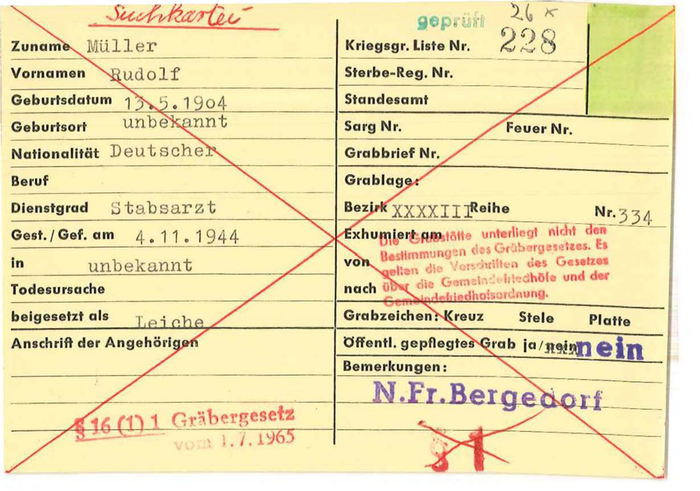 Suchkartei
geprüft 26 x
Zuname Müller
Kriegsgr. Liste Nr. 228
Vornamen Rudolf
Sterbe-Reg. Nr.
Geburtsdatum 13.5.19o4
Standesamt
Geburtsort unbekannt
Sarg Nr. Feuer Nr.
Nationalität Deutscher
Grabbrief Nr.
Beruf
Grablage:
Dienstgrad Stabsarzt
Bezirk XXXXIII Reihe Nr. 334
Gest./Gef. am 4.11.1944
Exhumiert am
in unbekannt
von
Todesursache
nach
Die Grabstätte unterliegt nicht den
Bestimmungen des Gräbergesetzes. Es
gelten die Vorschriften des Gesetzes
über die Gemeindefriedhöfe und der
Gemeindefriedhofsordnung.
beigesetzt als Leiche
Grabzeichen: Kreuz Stele Platte
Anschrift der Angehörigen
Öffentl. gepflegtes Grab ja/nein nein
Bemerkungen:
N.Fr.Bergedorf
§ 16 (1) 1 Gräbergesetz
vom 1.7.1965
§ 1